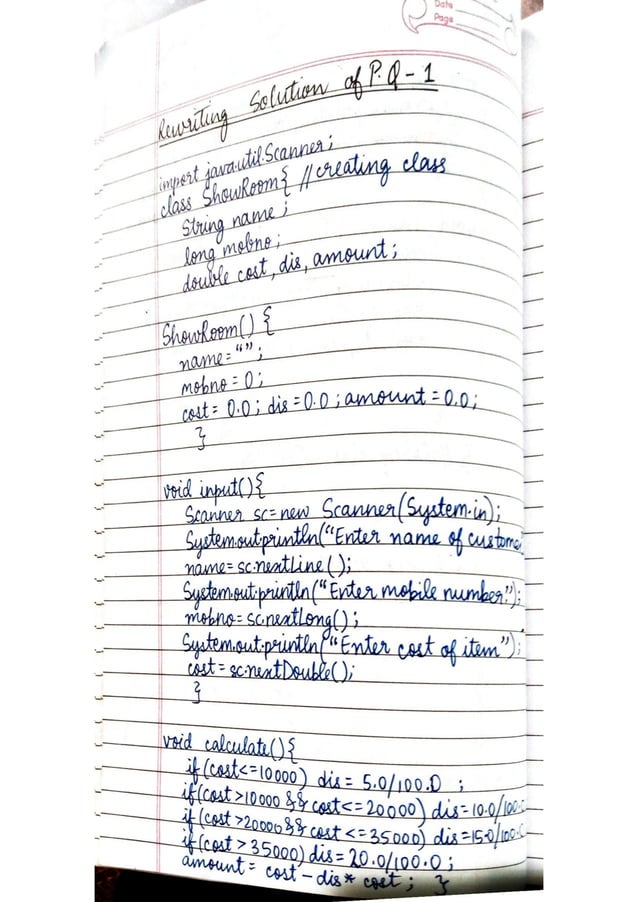 Date
Page
Rewriting Solution of P.Q-1
import java.util.Scanner;
class ShowRoom{ //creating class
String name;
long mobno;
double cost, dis, amount;
ShowRoom() {
name="";
mobno = 0;
cost = 0.0; dis = 0.0; amount = 0.0;
}
void input(){
Scanner sc=new Scanner(System.in);
System.out.println("Enter name of custome
name=sc.nextLine();
System.out.println("Enter mobile number:");
mobno=sc.nextLong();
System.out.println("Enter cost of item");
cost=sc.nextDouble();
}
void calculate(){
if(cost<=10000) dis= 5.0/100.0 ;
if(cost>10000 && cost<=20000) dis=10.0/100.0
if(cost>20000 && cost<=35000) dis=15.0/100.0
if(cost>35000) dis=20.0/100.0;
amount= cost-dis* cost; }